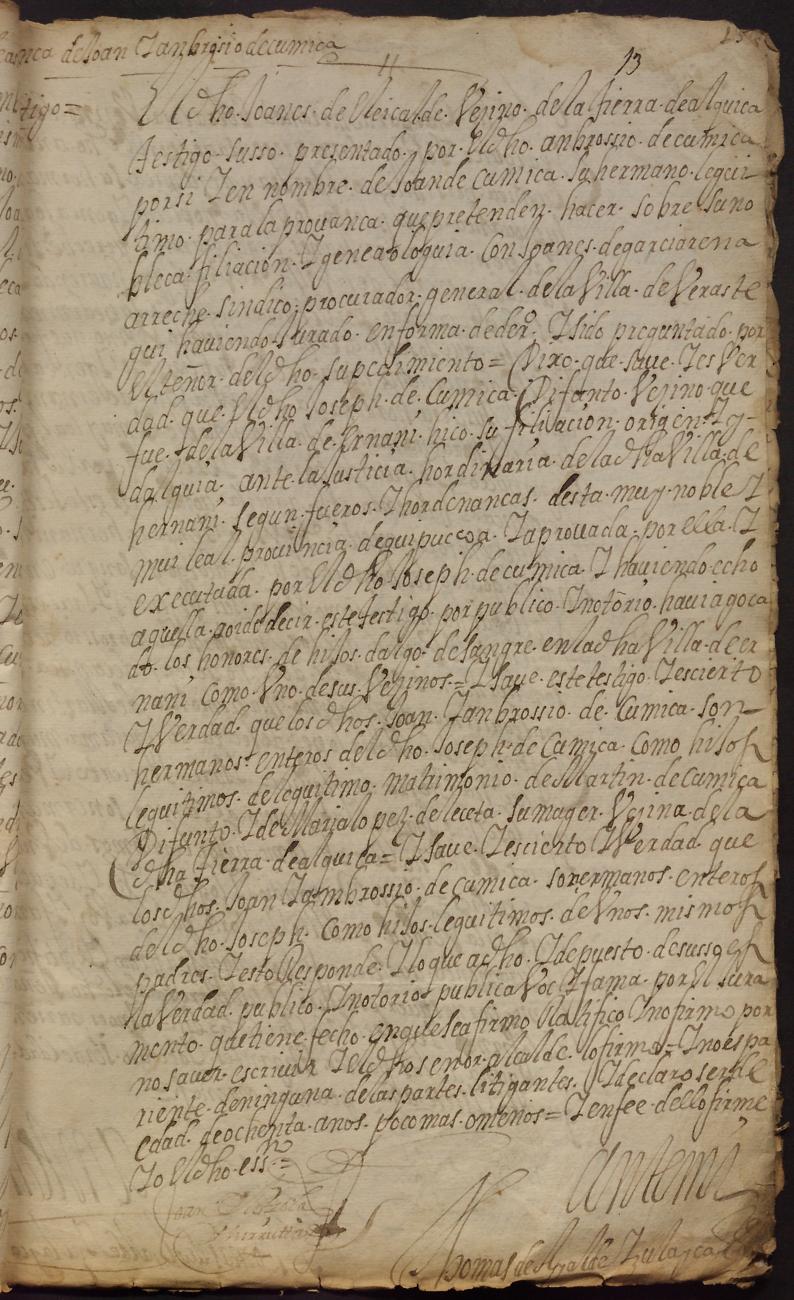 de Joan I anbrosio de cumica
11
13
tigo=
El dho. Joanes. de Eleicalde. Vezino. de la tierra. de alquica
testigo. susso. pressentado. por. El dho. anbrossio. de cumica
por si I en nombre. de Joan de Cumica. su hermano. legui
timo. para la provanca. que pretenden. hacer. sobre su no
bleca. filiacion. I genealoguia. Con Joanes. de garciarena
arreche. sindico, procurador. general. de la Villa. de Veraste
gui haviendo. Jurado. en forma. de dero. I sido preguntado. por
El tenor. del dho. su pedimiento= Dixo. que. save. I es Ver
dad. que. El dho Joseph. de. Cumica. Difunto. Vezino. que
fue. de la Villa. de. Ernani. hico. su filiacion. origen. I y-
dalguia, ante. la Justicia. hordinaria. de la dha Villa. de
hernani. segun. fueros. I hordenancas. desta. muy. noble. I
mui leal. provincia. de guipuccoa. I aprovada. por ella. I
executada. por El dho. Joseph. de cumica. I haviendo. echo
aquella. oido decir. este testigo. por publico. I notorio. havia goca
do. los honores. de hijos. dalgo. de sangre. en la dha Villa. de er
nani como. Vno. de sus. Vezinos.= I save. este testigo. I es cierto
I Verdad. que los dhos. Joan. I anbrossio. de. Cumica. son
hermanos. enteros del dho. Joseph. de Cumica. Como hijos
leguitimos. de leguitimo. matrimonio. de Martin. de Cumica
Difunto. I de Maria lopez. de leceta. su muger. Vezina. de la
dha tierra. de alquica= I save. I es cierto I Verdad que
los dhos. Joan I ambrossio. de cumica. son ermanos. enteros
del dho. Joseph. Como hijos. leguitimos. de Vnos. mismos
padres. I esto Responde. I lo que a dho. I depuesto. de susso es
la Verdad. publico. I notorio. publica Voc I fama. por El Jura
mento. que tiene. fecho en que se afirmo Ratifico I no firmo por
no saver escrivir I el dho senor alcalde. lo firmo= I no es pa
riente. de ninguna. de las partes. litigantes. I declaro ser de
edad. de ochenta. anos. poco mas. o menos= I en fee. dello firme
Io El dho. essno=
Joan
ante mi
Thomas de